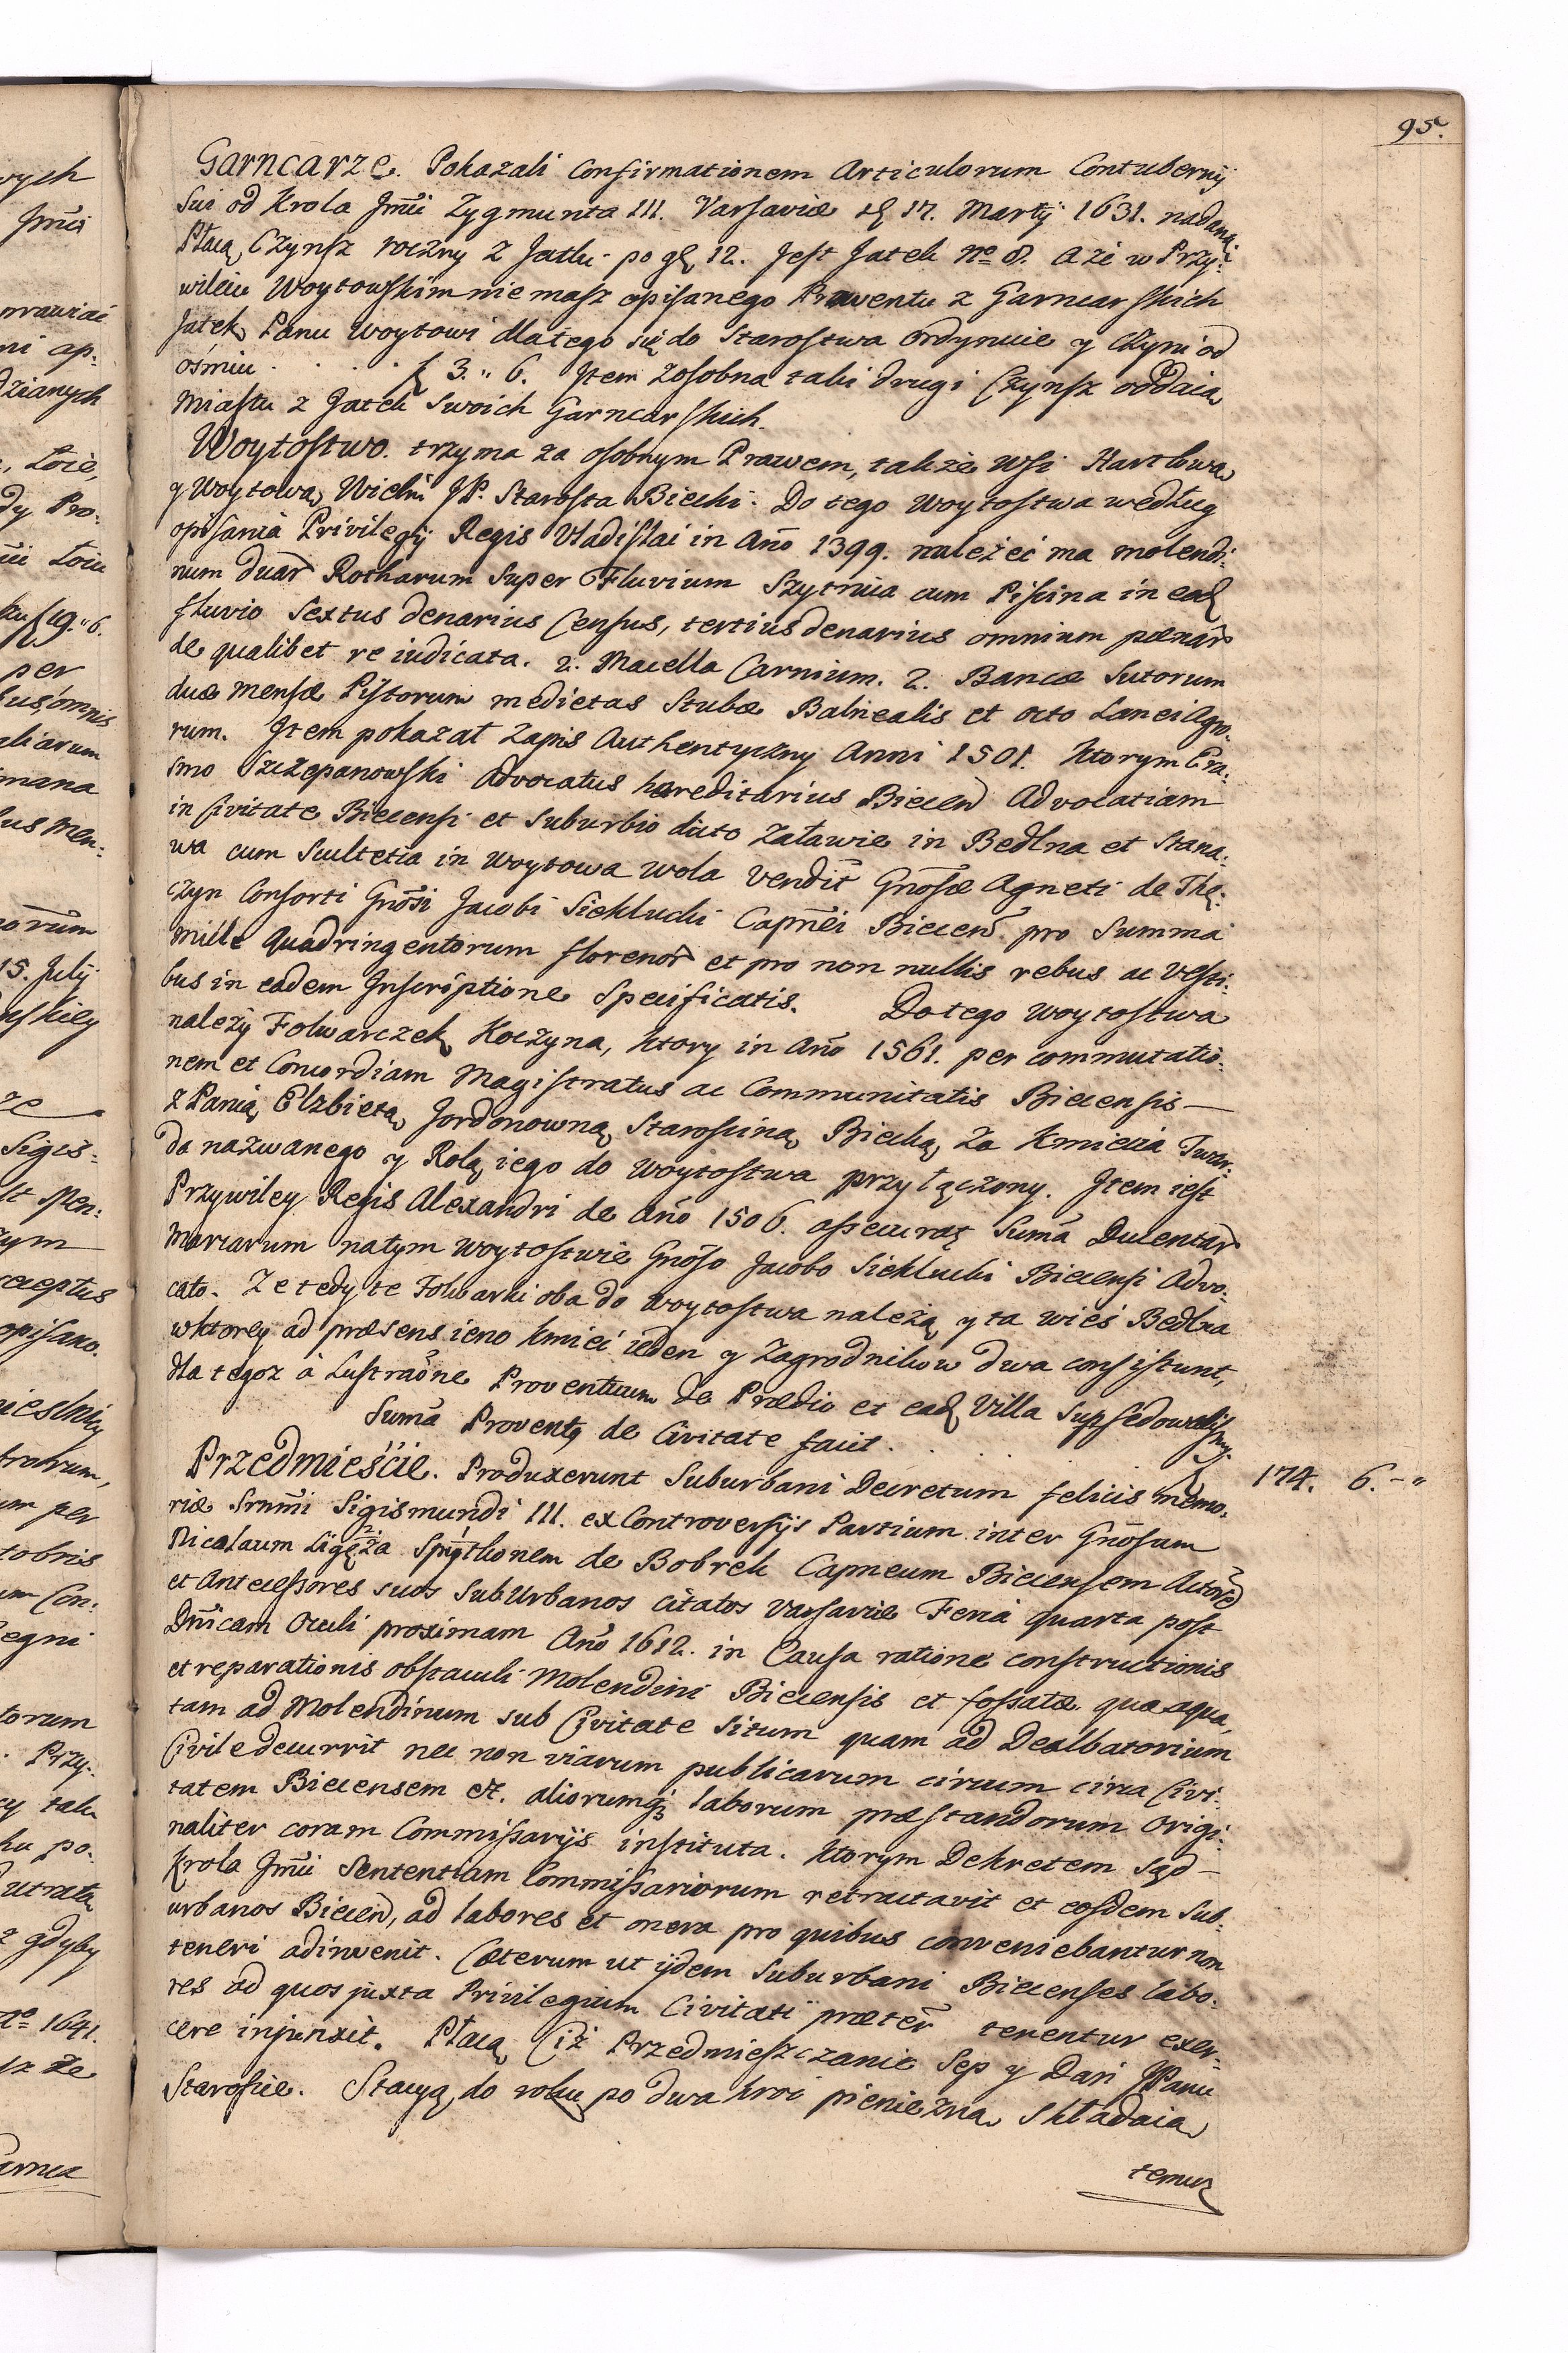 95.
Garncarze. Pokazali Confirmationem Articulorum Contubernij
Sui od Krola Jmći Zygmunta III. Varsaviæ 17. Martij 1631. nadaną
Płacą Czynsz roczny z Jatki po g 12. Jest Jatek No 8. A że w Przy:
wileiu Woytowskim nie masz opisanego Prowentu z Garncarskich
Jatek Panu Woytowi dlatego się do Starostwa Ordynuie y Czyni od
ośmiu . . . . . f 3. „ 6. Item zosobna taki drugi Czynsz oddaią
Miastu z Jatek Swoich Garncarskich.
Woytostwo. trzyma za osobnym Prawem, także wsi Harklową
y Woytową Wielm JP. Starosta Biecki. Do tego Woytostwa według
opisania Privilegij Regis Vladislai in Año 1399. należeć ma molendi:
num duar Rotharum Super Fluvium Szytnica cum Piscina in ead
fluvio Sextus denarius Census, tertius denarius omnium pænar
de qualibet re iudicata. 2. Macella Carnium. 2. Bancæ Sutorum
duæ Mensæ Pistorum medietas Stubæ Balnealis et octo Lanei Agro.
rum. Item pokazał Zapis Authentyczny Anni 1501. ktorym Era.
smo Szczepanowski Advocatus hæreditarius Biecen Advocatiam
in Civitate Biecensi et Suburbio dicto Załawie in Bedlna et Stana:
wa cum Scultetia in Woytowa Wola vendit Gnosæ Agneti de The:
czyn Consorti Gnosi Jacobi Siekluchi Capnei Biecen pro Summa
Mille Quadringentorum florenor et pro non nullis rebus ac vesti:
bus in eadem Inscriptione Specificatis. Do tego Woytostwa
należy Folwarczek Koczyna, ktory in Año 1561. per commutatio.
nem et Concordiam Magistratus ac Communitatis Biecensis —
z Panią Elzbietą Jordonowną Starościną Biecką za Kmiecia
da nazwanego y Rolą iego do Woytostwa przyłączony. Item iest
Przywiley Regis Alexandri de Año 1506. assecurat Sumã Ducentar
Marcarum na tym Woytostwie Gnoso Jacobo Siekluchi Biecensi Advo.
cato. Ze tedy te Folwarki oba do Woytostwa należą y ta wieś Bedlna
w ktorey ad præsens ieno kmieć ieden y Zagrodnikow dwa consistunt,
dla tegoz à Lustraõne Proventuum de Prædio et ead Villa
Sumã Provent de Civitate facit . . . . . f 174. 6. – „
Przedmieście. Produxerunt Suburbani Decretum felicis memo.
riæ Srnmi Sigismundi III. ex Controversijs Partium inter Gnosum
Nicolaum Ligęza de Bobrek Capneum Biecensem Actorẽ
et Antecessores suos SubUrbanos citatos Varsaviæ Feria quarta post
Dnicam Oculi proximam Año 1612. in Causa ratione constructionis
et reparationis obstaculi Molendini Biecensis et fossatæ qua aqua,
tam ad Molendinum sub Civitate Situm quam ad Dealbatorium
Civile decurrit nec non viarum publicarum circum circa Civi.
tatem Biecensem et. aliorumq laborum præstandorum origi.
naliter coram Commissarijs instituta. ktorym Dekretem Sąd —
Krola Jmći Sententiam Commissariorum retractavit et eosdem Sub.
urbanos Biecen, ad labores et onera pro quibus conveniebantur non
teneri adinvenit. Cæterum ut ijdem Suburbani Biecenses labo.
res ad quos juxta Privilegium Civitati præter tenentur exer.
cere injunxit. Płacą Ciż Przedmieszczanie Sep y Dań JPanu
Staroście. Stacyą do roku po dwa kroć pieniezną składaią